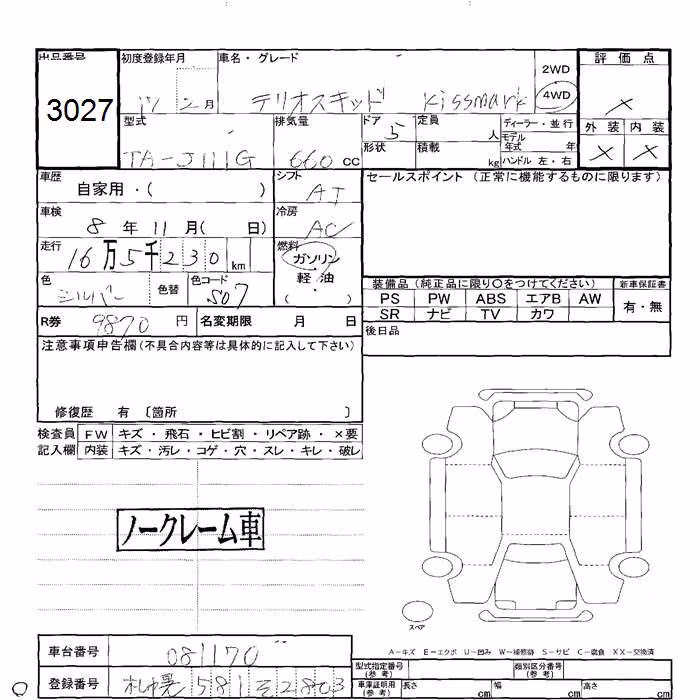 出品番号 初度登録年月 車名・グレード 2WD 評価点
3027 17 2月 テリオスキッド Kissmark 4WD ×
型式 排気量 ドア 5 定員 人 ディーラー・並行 外装 内装
TA-J111G 660cc 形状 積載 kg モデル年式 年 ハンドル 左・右 × ×
車歴 自家用・( ) シフト AT セールスポイント (正常に機能するものに限ります)
車検 8年11月( 日) 冷房 AC
走行 16万5千230km 燃料 ガソリン・軽油・( )
色 シルバー 色替 色コード S07 装備品 (純正品に限り〇をつけてください) 新車保証書
PS PW ABS エアB AW 有・無
SR ナビ TV カワ
R券 9870円 名変期限 月 日 後日品
注意事項申告欄(不具合内容等は具体的に記入して下さい)
修復歴 有 〔箇所 〕
検査員 FW キズ・飛石・ヒビ割・リペア跡・×要
記入欄 内装 キズ・汚レ・コゲ・穴・スレ・キレ・破レ
ノークレーム車
スペア
A-キズ E-エクボ U-凹み W-補修跡 S-サビ C-腐食 XX-交換済
車台番号 081170 型式指定番号(参考) 類別区分番号(参考)
登録番号 札幌 581 そ 2803 車庫証明用(参考) 長さ cm 幅 cm 高さ cm